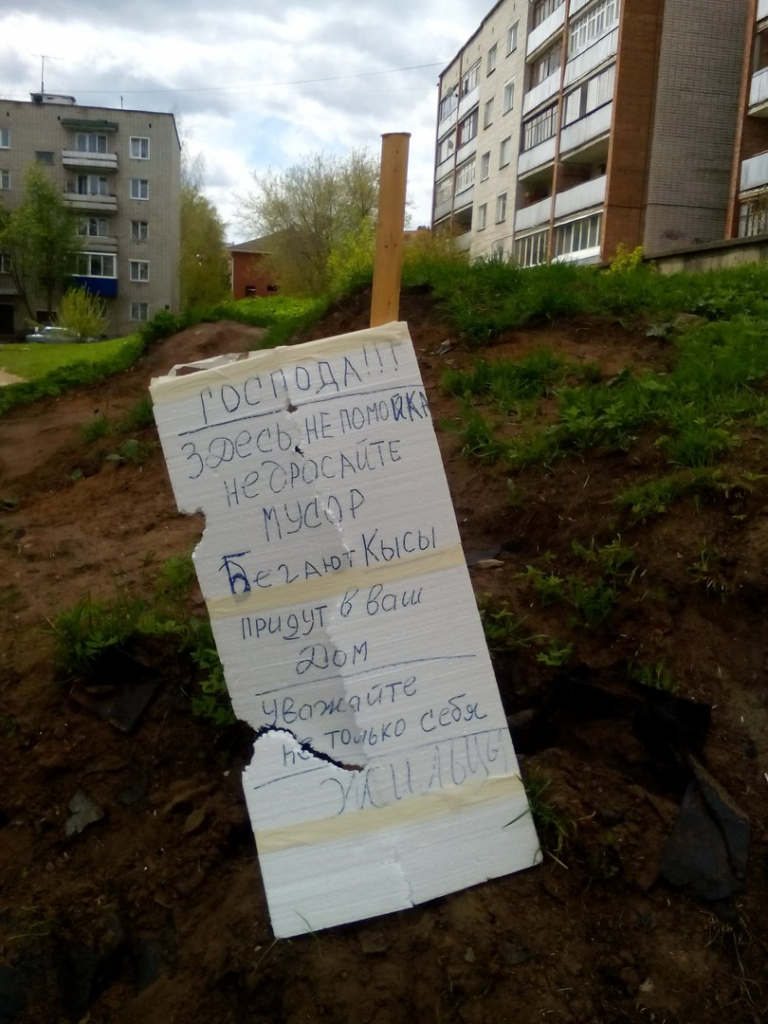 ГОСПОДА!!!
ЗДЕСЬ НЕ ПОМОЙКА
НЕ БРОСАЙТЕ
МУСОР
БЕГАЮТ КЫСЫ
ПРИДУТ В ВАШ
ДОМ
УВАЖАЙТЕ
НЕ ТОЛЬКО СЕБЯ
ЖИЛЬЦЫ